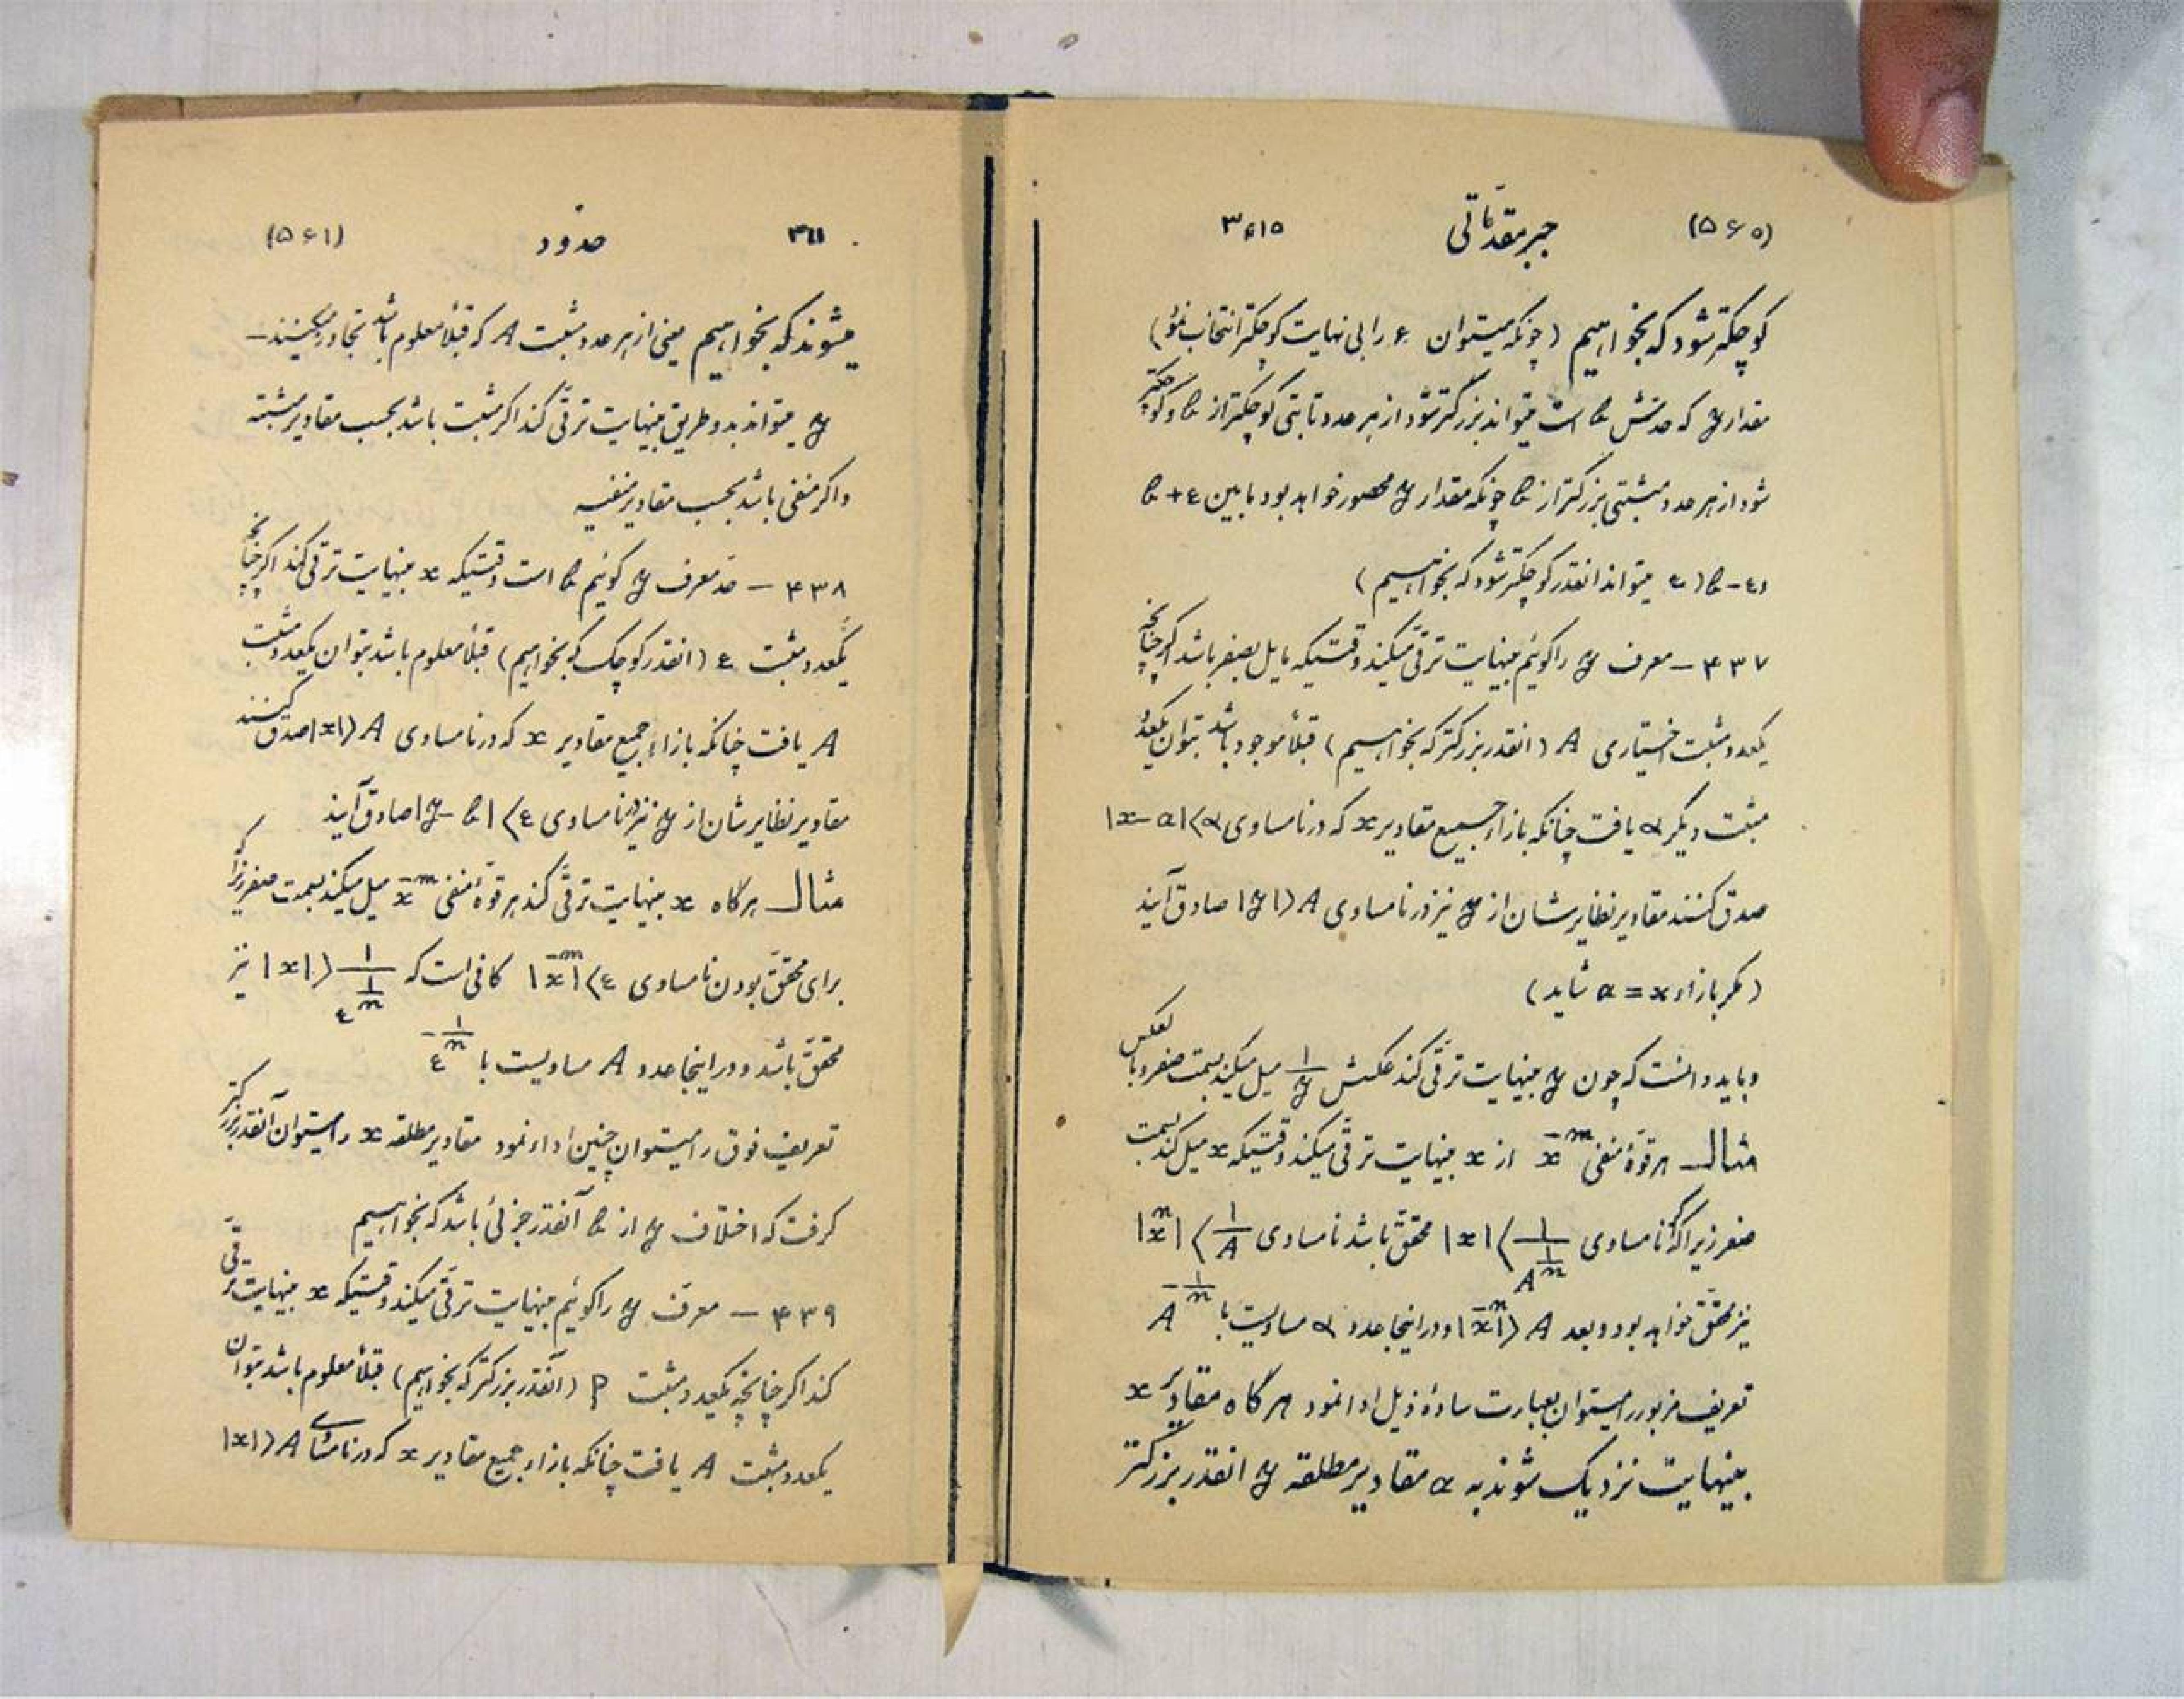 (۵۶۰) جبر مقدماتی
کوچکتر شود که بخواهیم (چونکه میتوان ε را بی نهایت کوچکتر انتخاب نمود)
مقدار y که حدش b است میتواند بزرگتر شود از هر عدد ثابتی کوچکتر از b و کوچکتر
شود از هر عدد مثبتی بزرگتر از b چونکه مقدار y محصور خواهد بود ما بین b+ε
و b-ε (ε میتواند انقدر کوچکتر شود که بخواهیم)
۴۳۷ – معرف y را گوئیم بینهایت ترقی میکند وقتیکه مایل بصفر باشد اگر چنانچه
یکعدد مثبت اختیاری A (انقدر بزرگتر که بخواهیم) قبلاً موجود باشد بتوان یکعدد
مثبت دیگر α یافت چنانکه بازاء جمیع مقادیر x که در نامساوی |x-a|<α
صدق کنند مقادیر نظایرشان از y نیز در نامساوی |y|>A صادق آیند
(مگر بازاء x=a شاید)
و باید دانست که چون y بینهایت ترقی کند عکسش ۱/y میل میکند بسمت صفر و بالعکس
مثال هر قوهٔ منفی x^-m از x بینهایت ترقی میکند وقتیکه x میل کند بسمت
صفر زیرا که اگر نامساوی |x|<۱/A^(۱/n) محقق باشد نامساوی |x^n|<۱/A
نیز محقق خواهد بود و بعد |x^-n|>A و در اینجا عدد α مساویست با A^(-۱/n)
تعریف مزبور را میتوان بعبارت سادهٔ ذیل ادا نمود هر گاه مقادیر x
بینهایت نزدیک شوند به a مقادیر مطلقه y انقدر بزرگتر
حدود (۵۶۱)
میشوند که بخواهیم یعنی از هر عدد مثبت A که قبلاً معلوم باشد تجاوز میکنند –
y میتواند بدو طریق بینهایت ترقی کند اگر مثبت باشد بحسب مقادیر مثبته
و اگر منفی باشد بحسب مقادیر منفیه
۴۳۸ – حد معرف y گوئیم b است وقتیکه x بینهایت ترقی کند اگر چنانچه
یکعدد مثبت ε (انقدر کوچک که بخواهیم) قبلاً معلوم باشد بتوان یکعدد مثبت
A یافت چنانکه بازاء جمیع مقادیر x که در نامساوی |x|>A صدق کنند
مقادیر نظایرشان از y نیز در نامساوی |y-b|<ε صادق آیند
مثال هر گاه x بینهایت ترقی کند هر قوهٔ منفی x^-m میل میکند بسمت صفر زیرا که
برای محقق بودن نامساوی |x^-m|<ε کافی است که |x|>۱/ε^(۱/n) نیز
محقق باشد و در اینجا عدد A مساویست با ε^(-۱/n)
تعریف فوق را میتوان چنین اداء نمود مقادیر مطلقه x را میتوان آنقدر بزرگتر
گرفت که اختلاف y از b آنقدر جزئی باشد که بخواهیم
۴۳۹ – معرف y را گوئیم بینهایت ترقی میکند وقتیکه x بینهایت ترقی
کند اگر چنانچه یکعدد مثبت P (آنقدر بزرگتر که بخواهیم) قبلاً معلوم باشد بتوان
یکعدد مثبت A یافت چنانکه بازاء جمیع مقادیر x که در نامساوی |x|>A